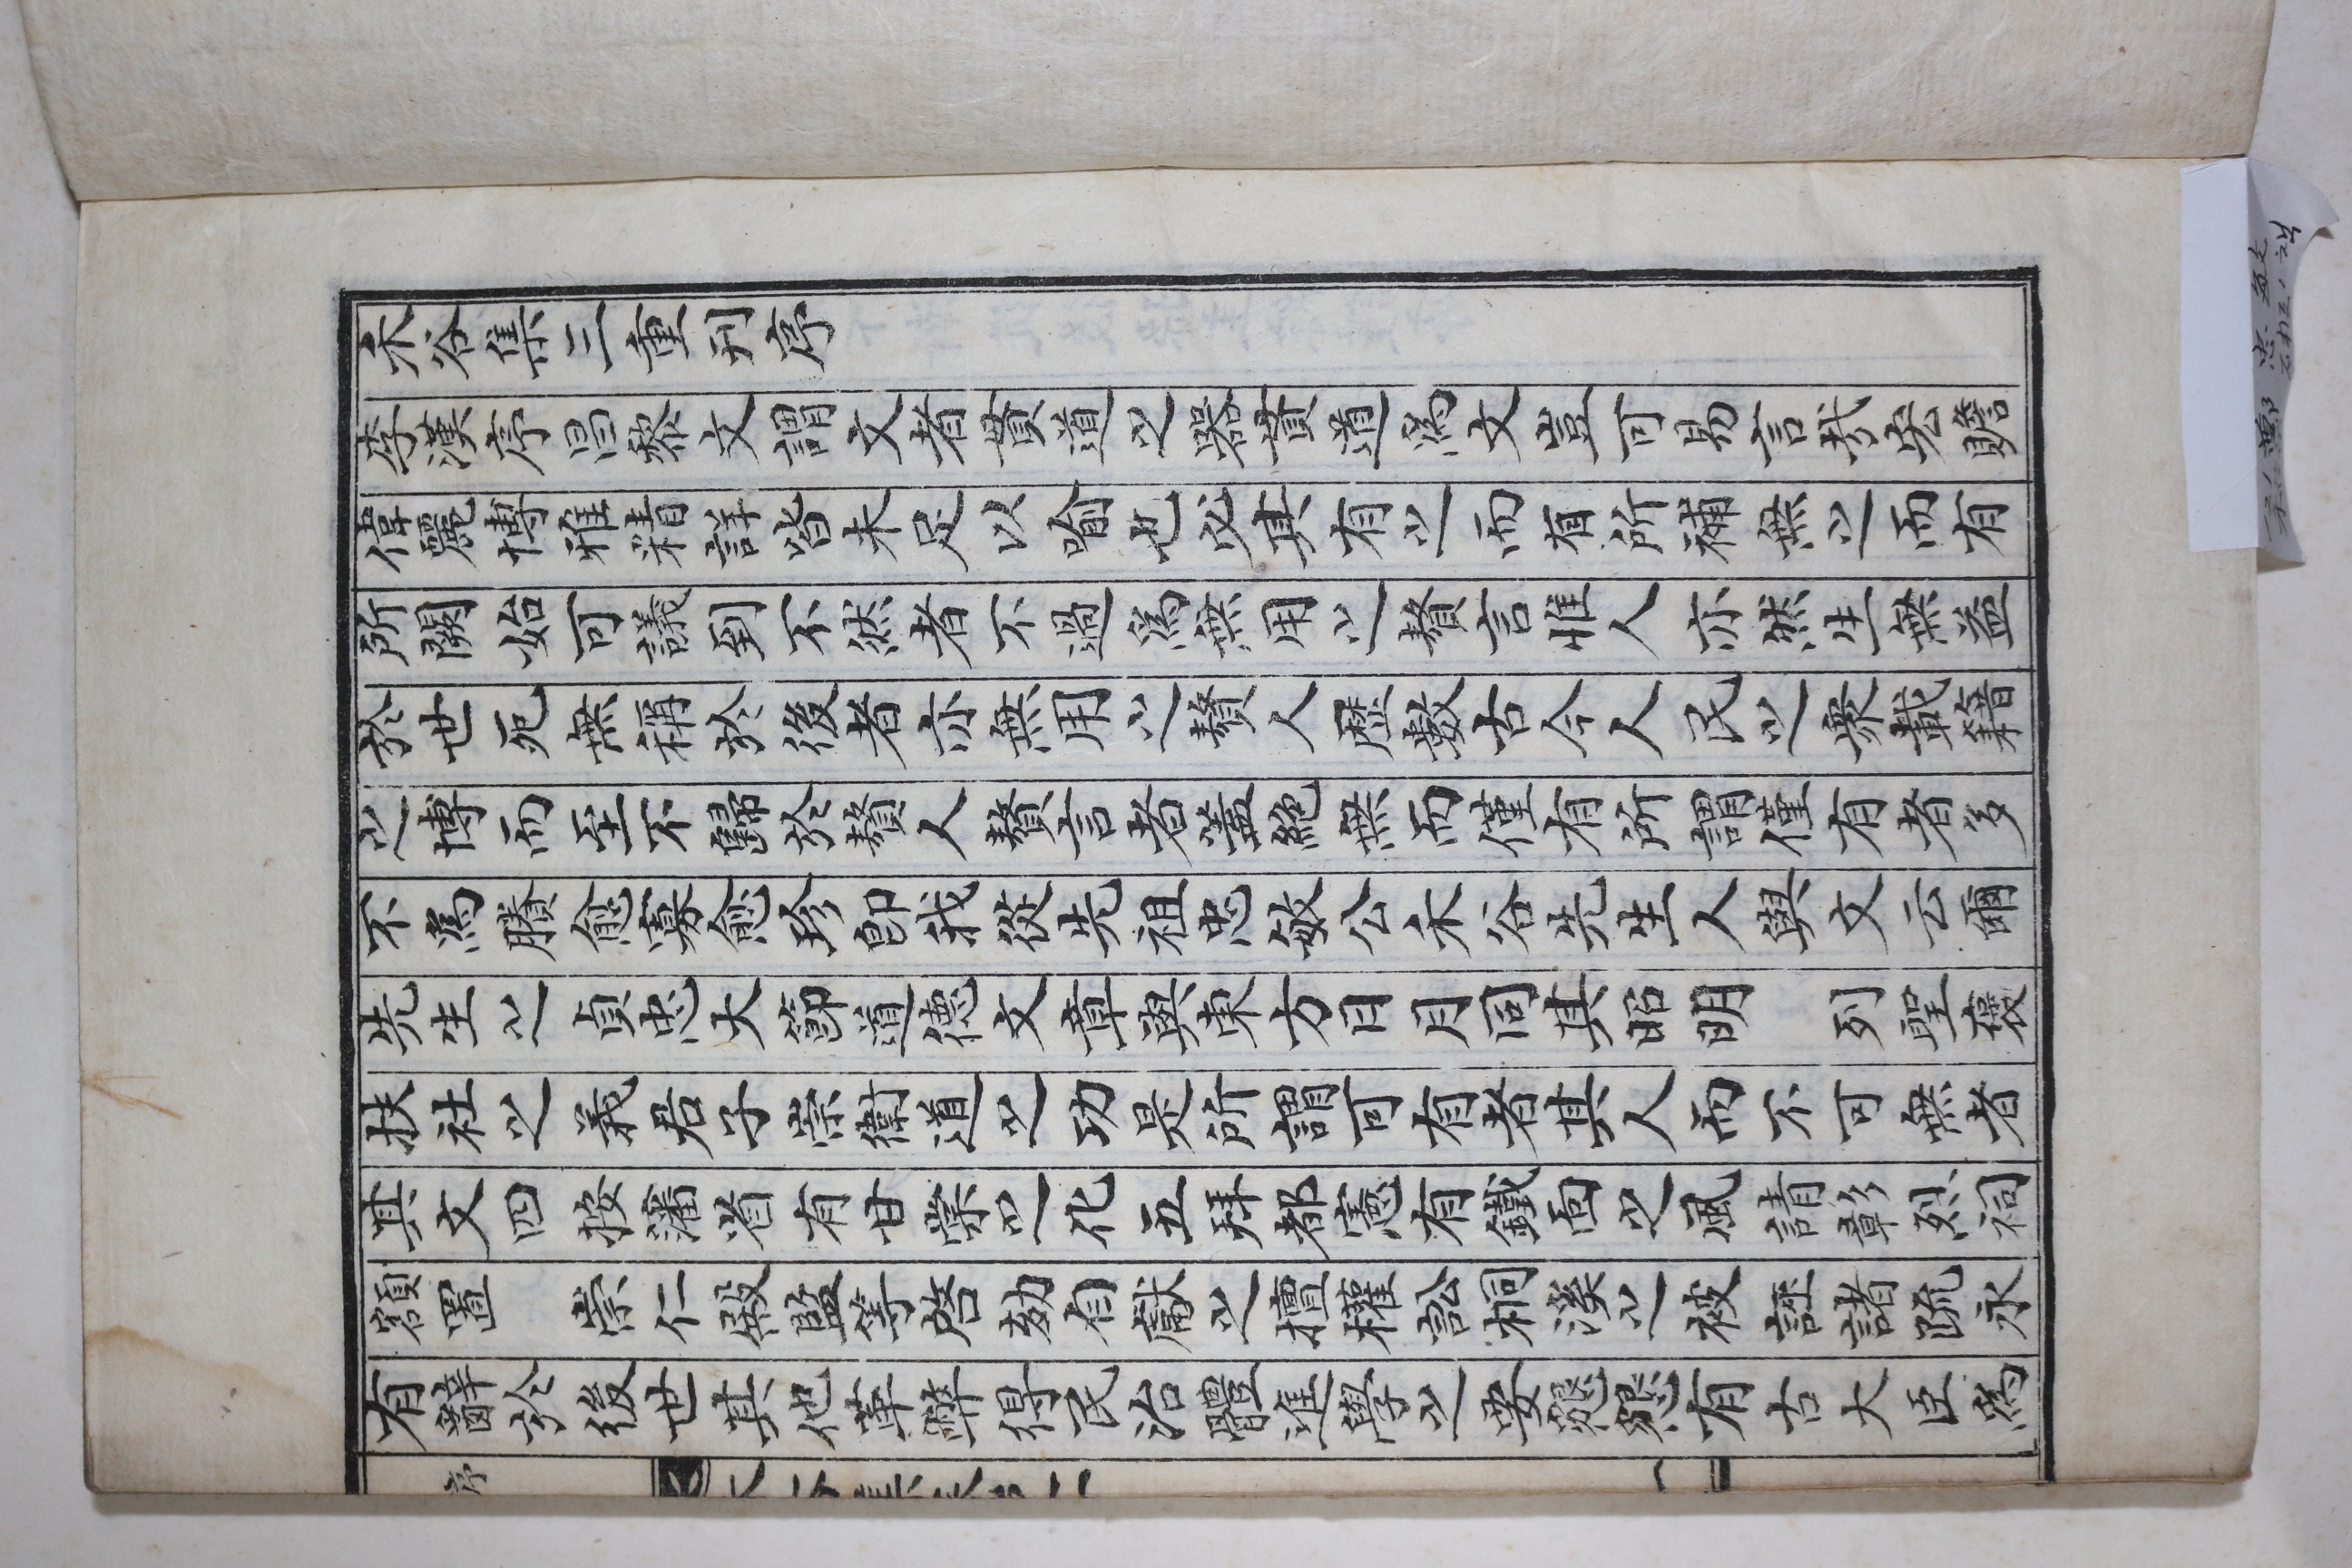 禾谷集三重刊序
李漢序昌黎文謂文者貫道之器貫道爲文豈可易言㦲宏贍
偉麗博雅精詳皆未足以喻也必其有之而有所補無之而有
所闕始可議到不然者不過爲無用之贅言惟人亦然生無益
於世死無稱於後者亦無用之贅人歷數古今人民之衆載籍
之博而至不歸於贅人贅言者蓋絶無而僅有所謂僅有者多
不爲賸愈寡愈珍卽我從先祖忠敏公禾谷先生人與文云爾
先生之貞忠大節道德文章與東方日月同其昭明 列聖褒
扶社之義君子崇衛道之功是所謂可有者其人而不可無者
其文四按藩省有甘棠之化五拜都憲有鐵面之風請彰烈祠
額置 崇仁殿監等啓劾自獻之擅權訟桐溪之被誣諸疏永
有辭於後世其他革弊得民治體進學之要懇懇有古大臣爲
序
忠敏